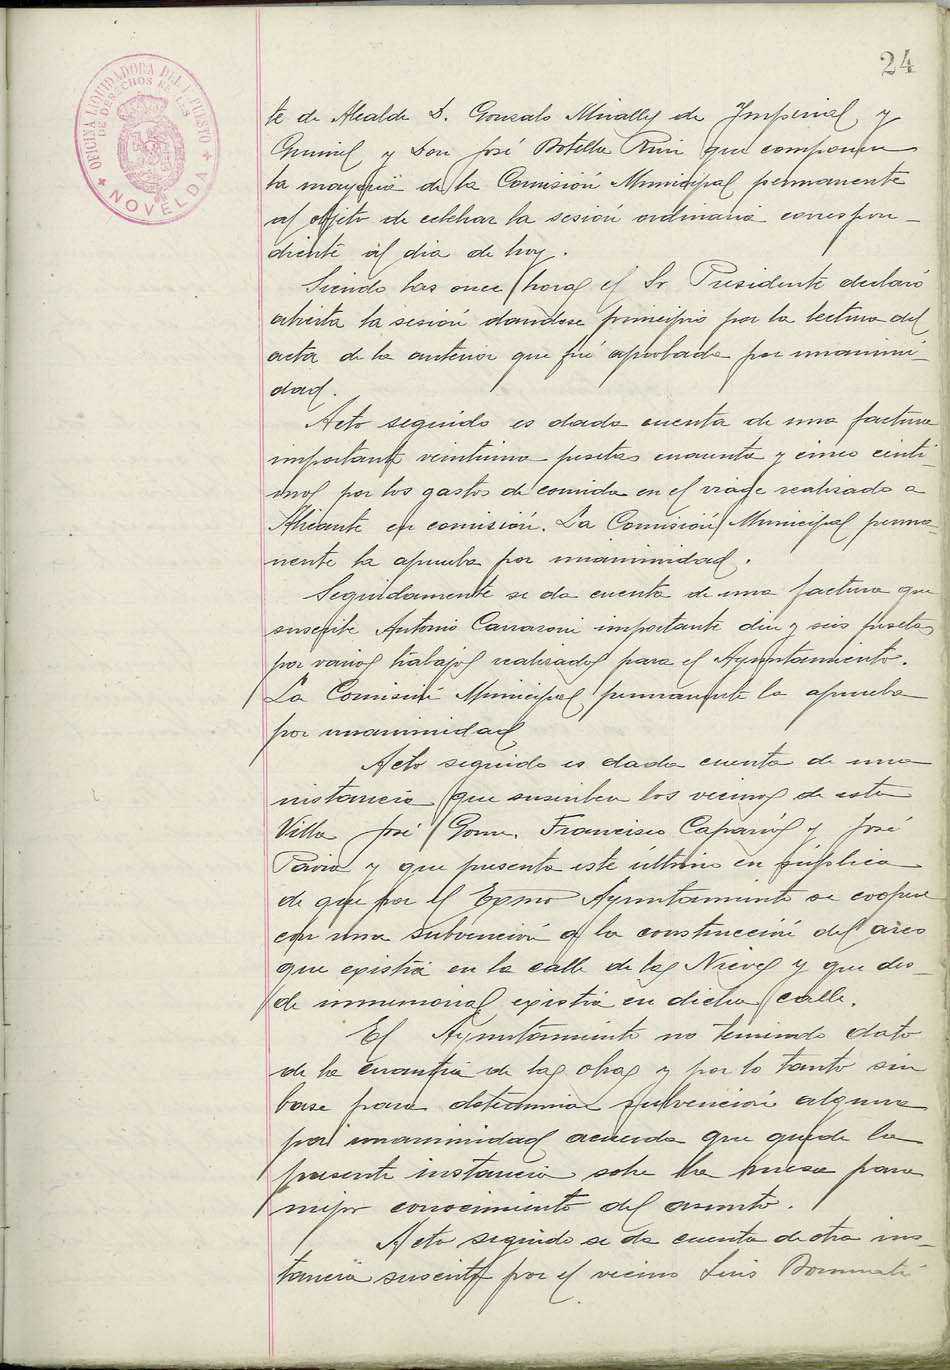 24
OFICINA LIQUIDADORA DEL IMPUESTO
DE DERECHOS REALES
NOVELDA
te de Alcalde D. Gonzalo Miralles de Imperial y
y Don José Botella que componen
la mayoria de la Comisión Municipal permanente
al objeto de celebrar la sesión ordinaria correspon-
diente al dia de hoy.
Siendo las once horas el Sr Presidente declaró
abierta la sesión dandose principio por la lectura del
acta de la anterior que fué aprobada por unanimi-
dad.
Acto seguido es dada cuenta de una factura
importante veintiuna pesetas cuarenta y cinco centi-
mos por los gastos de comida en el viage realizado a
Alicante en comisión. La Comisión Municipal perma-
nente la aprueba por unanimidad.
Seguidamente se da cuenta de una factura que
suscribe Antonio importante diez y seis pesetas
por varios trabajos realizados para el Ayuntamiento.
La Comisión Municipal permanente la aprueba
por unanimidad
Acto seguido es dada cuenta de una
instancia que suscriben los vecinos de esta
Villa José Francisco Caparrós y José
Pavia y que presenta este último en súplica
de que por el Exmo Ayuntamiento se coopere
con una subvención a la construcción del arco
que existia en la calle de las Nieves y que des-
de inmemorial existia en dicha calle.
El Ayuntamiento no teniendo dato
de la cuantia de las obras y por lo tanto sin
base para determinar subvención alguna
por unanimidad acuerda que quede la
presente instancia sobre la mesa para
mejor conocimiento del asunto.
Acto seguido se da cuenta de otra ins-
tancia suscrita por el vecino Luis